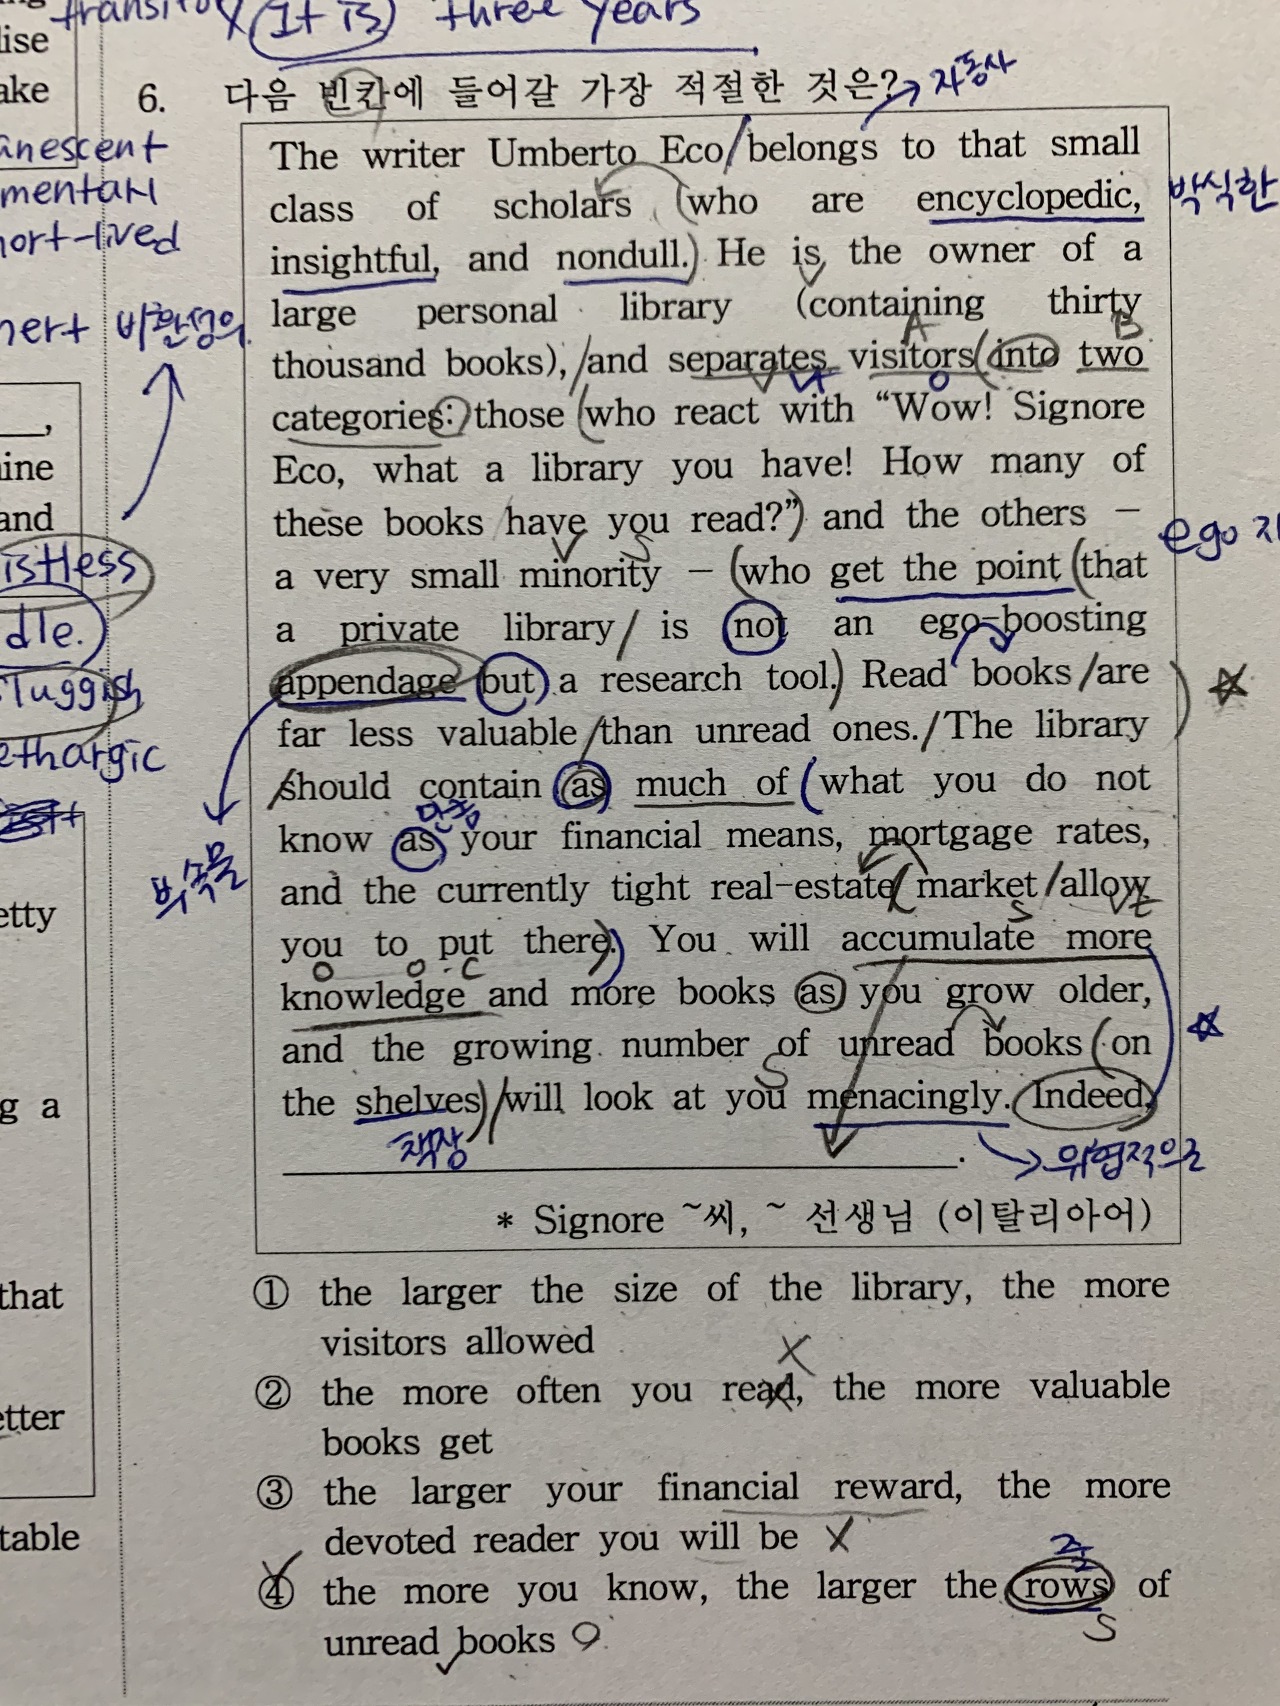 transitory (It is) three years
lise
ake
anescent
mentary
hort-lived
nert 비환성의
ine
and
istless
dle.
sluggish
ethargic
etty
g a
that
etter
table
6. 다음 빈칸에 들어갈 가장 적절한 것은? → 자동사
The writer Umberto Eco/belongs to that small
class of scholars (who are encyclopedic, 박식한
insightful, and nondull.) He is the owner of a
large personal library (containing thirty
A B
thousand books),/and separates visitors(into two
categories:) those (who react with “Wow! Signore
Eco, what a library you have! How many of
these books have you read?”) and the others –
a very small minority – (who get the point (that
ego
a private library/ is not an ego-boosting
appendage but a research tool.) Read books /are
far less valuable/than unread ones./The library
/should contain as much of (what you do not
만큼
know as your financial means, mortgage rates,
부속물
and the currently tight real-estate( market/allow
S
you to put there.) You will accumulate more
O O C
knowledge and more books as you grow older,
and the growing number of unread books (on
S
the shelves)/will look at you menacingly. Indeed,
책장
→ 위협적으로
.
* Signore ~씨, ~ 선생님 (이탈리아어)
① the larger the size of the library, the more
visitors allowed
② the more often you read, the more valuable
books get
③ the larger your financial reward, the more
devoted reader you will be X
줄
④ the more you know, the larger the rows of
S
unread books